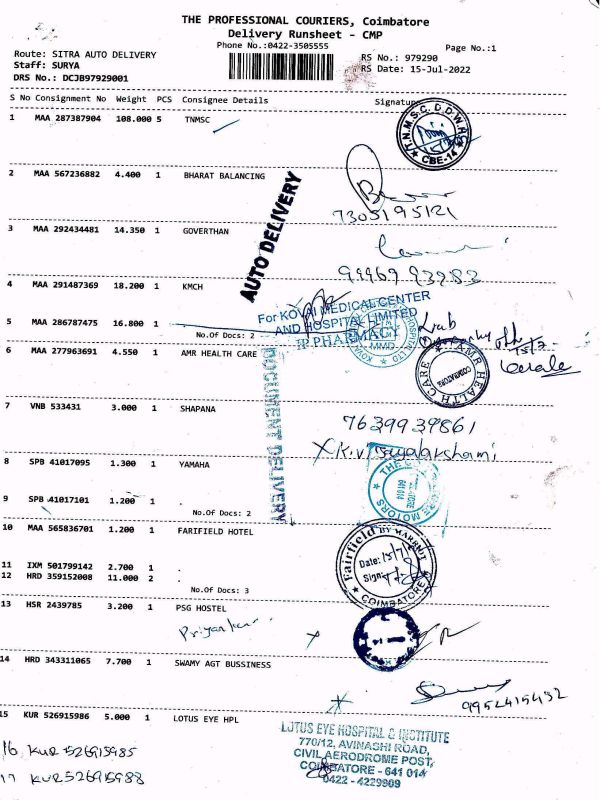 THE PROFESSIONAL COURIERS, Coimbatore
Delivery Runsheet - CMP
Phone No.:0422-3505555
Page No.:1
Route: SITRA AUTO DELIVERY
Staff: SURYA
DRS No.: DCJB97929001
RS No.: 979290
RS Date: 15-Jul-2022
S No Consignment No Weight PCS Consignee Details Signature
1 MAA 287387904 108.000 5 TNMSC
T.N.M.S.C. D.D.W.H
CBE-14
2 MAA 567236882 4.400 1 BHARAT BALANCING
7305195121
AUTO DELIVERY
3 MAA 292434481 14.350 1 GOVERTHAN
99969 93983
4 MAA 291487369 18.200 1 KMCH
For KOVAI MEDICAL CENTER
AND HOSPITAL LIMITED
IP PHARMACY
MMD
5 MAA 286787475 16.800 1
No.Of Docs: 2
6 MAA 277963691 4.550 1 AMR HEALTH CARE
AMR HEALTH CARE
COIMBATORE
DOCUMENT DELIVERY
7 VNB 533431 3.000 1 SHAPANA
7639939861
8 SPB 41017095 1.300 1 YAMAHA
641 014
MOTORS
9 SPB 41017101 1.200 1
No.Of Docs: 2
10 MAA 565836701 1.200 1 FARIFIELD HOTEL
Fairfield BY MARRIOTT
Date: 15/7/
Sign:
COIMBATORE
11 IXM 501799142 2.700 1 .
12 HRD 359152008 11.000 2 .
No.Of Docs: 3
13 HSR 2439785 3.200 1 PSG HOSTEL
14 HRD 343311065 7.700 1 SWAMY AGT BUSSINESS
9952415432
15 KUR 526915986 5.000 1 LOTUS EYE HPL
LOTUS EYE HOSPITAL & INSTITUTE
770/12, AVINASHI ROAD,
CIVIL AERODROME POST,
COIMBATORE - 641 014
0422 - 4229909
16 KUR 526915985
17 KUR 526915988